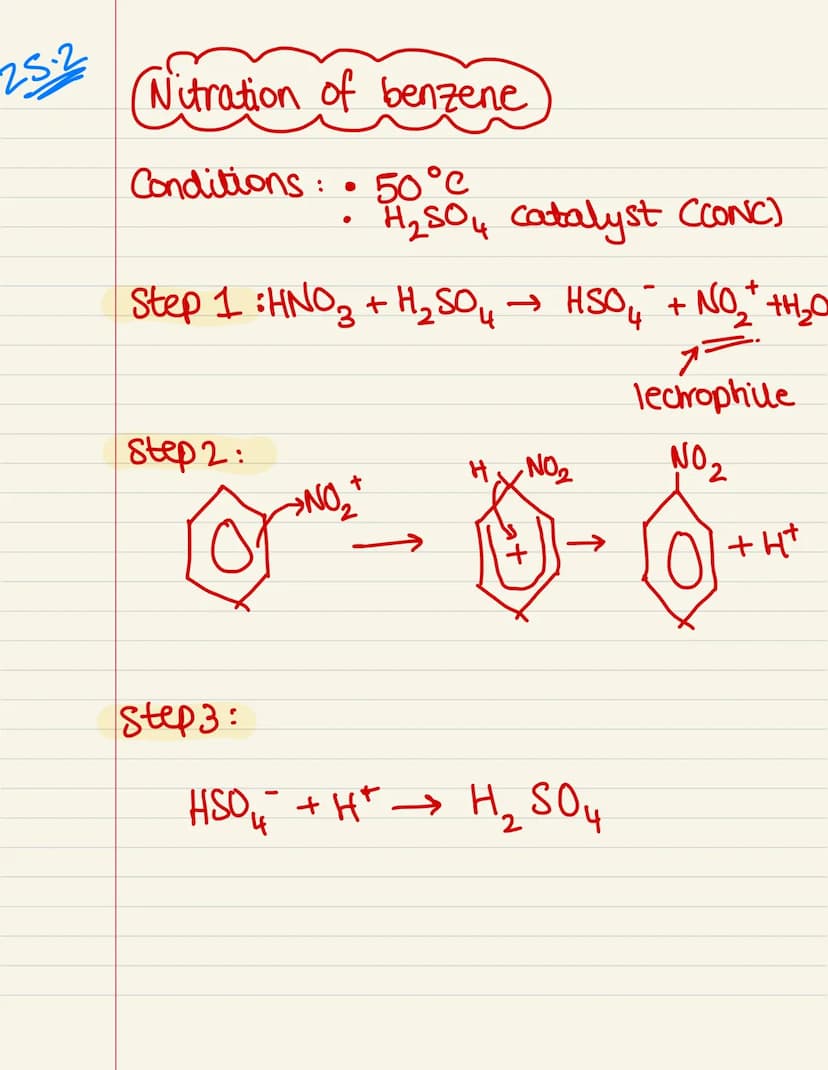 25.2
Nitration of benzene
Conditions : • 50°C
• H₂SO₄ catalyst (CONC)
Step 1 : HNO₃ + H₂SO₄ → HSO₄⁻ + NO₂⁺ + H₂O
lectrophile
Step 2 :
NO₂⁺
→
H NO₂
+
→
NO₂
+ H⁺
Step 3 :
HSO₄⁻ + H⁺ → H₂SO₄